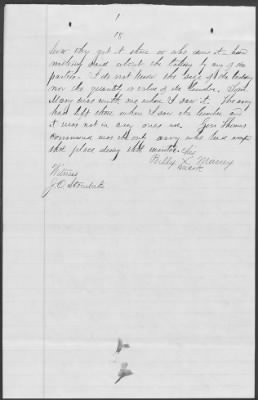 18
how they got it there or who cut it. I heard
nothing said about the taking by any of the
parties. I do not know the size of the building
nor the quantity or value of the lumber. Syan
Macy was with me when I saw it. The army
had left there when I saw the lumber and
it was not in any ones use. Gen Thomas
Command was the only army who had camped
that place during that winter.
his
Billy X Macey
mark
Witness
J.C. Stoubate